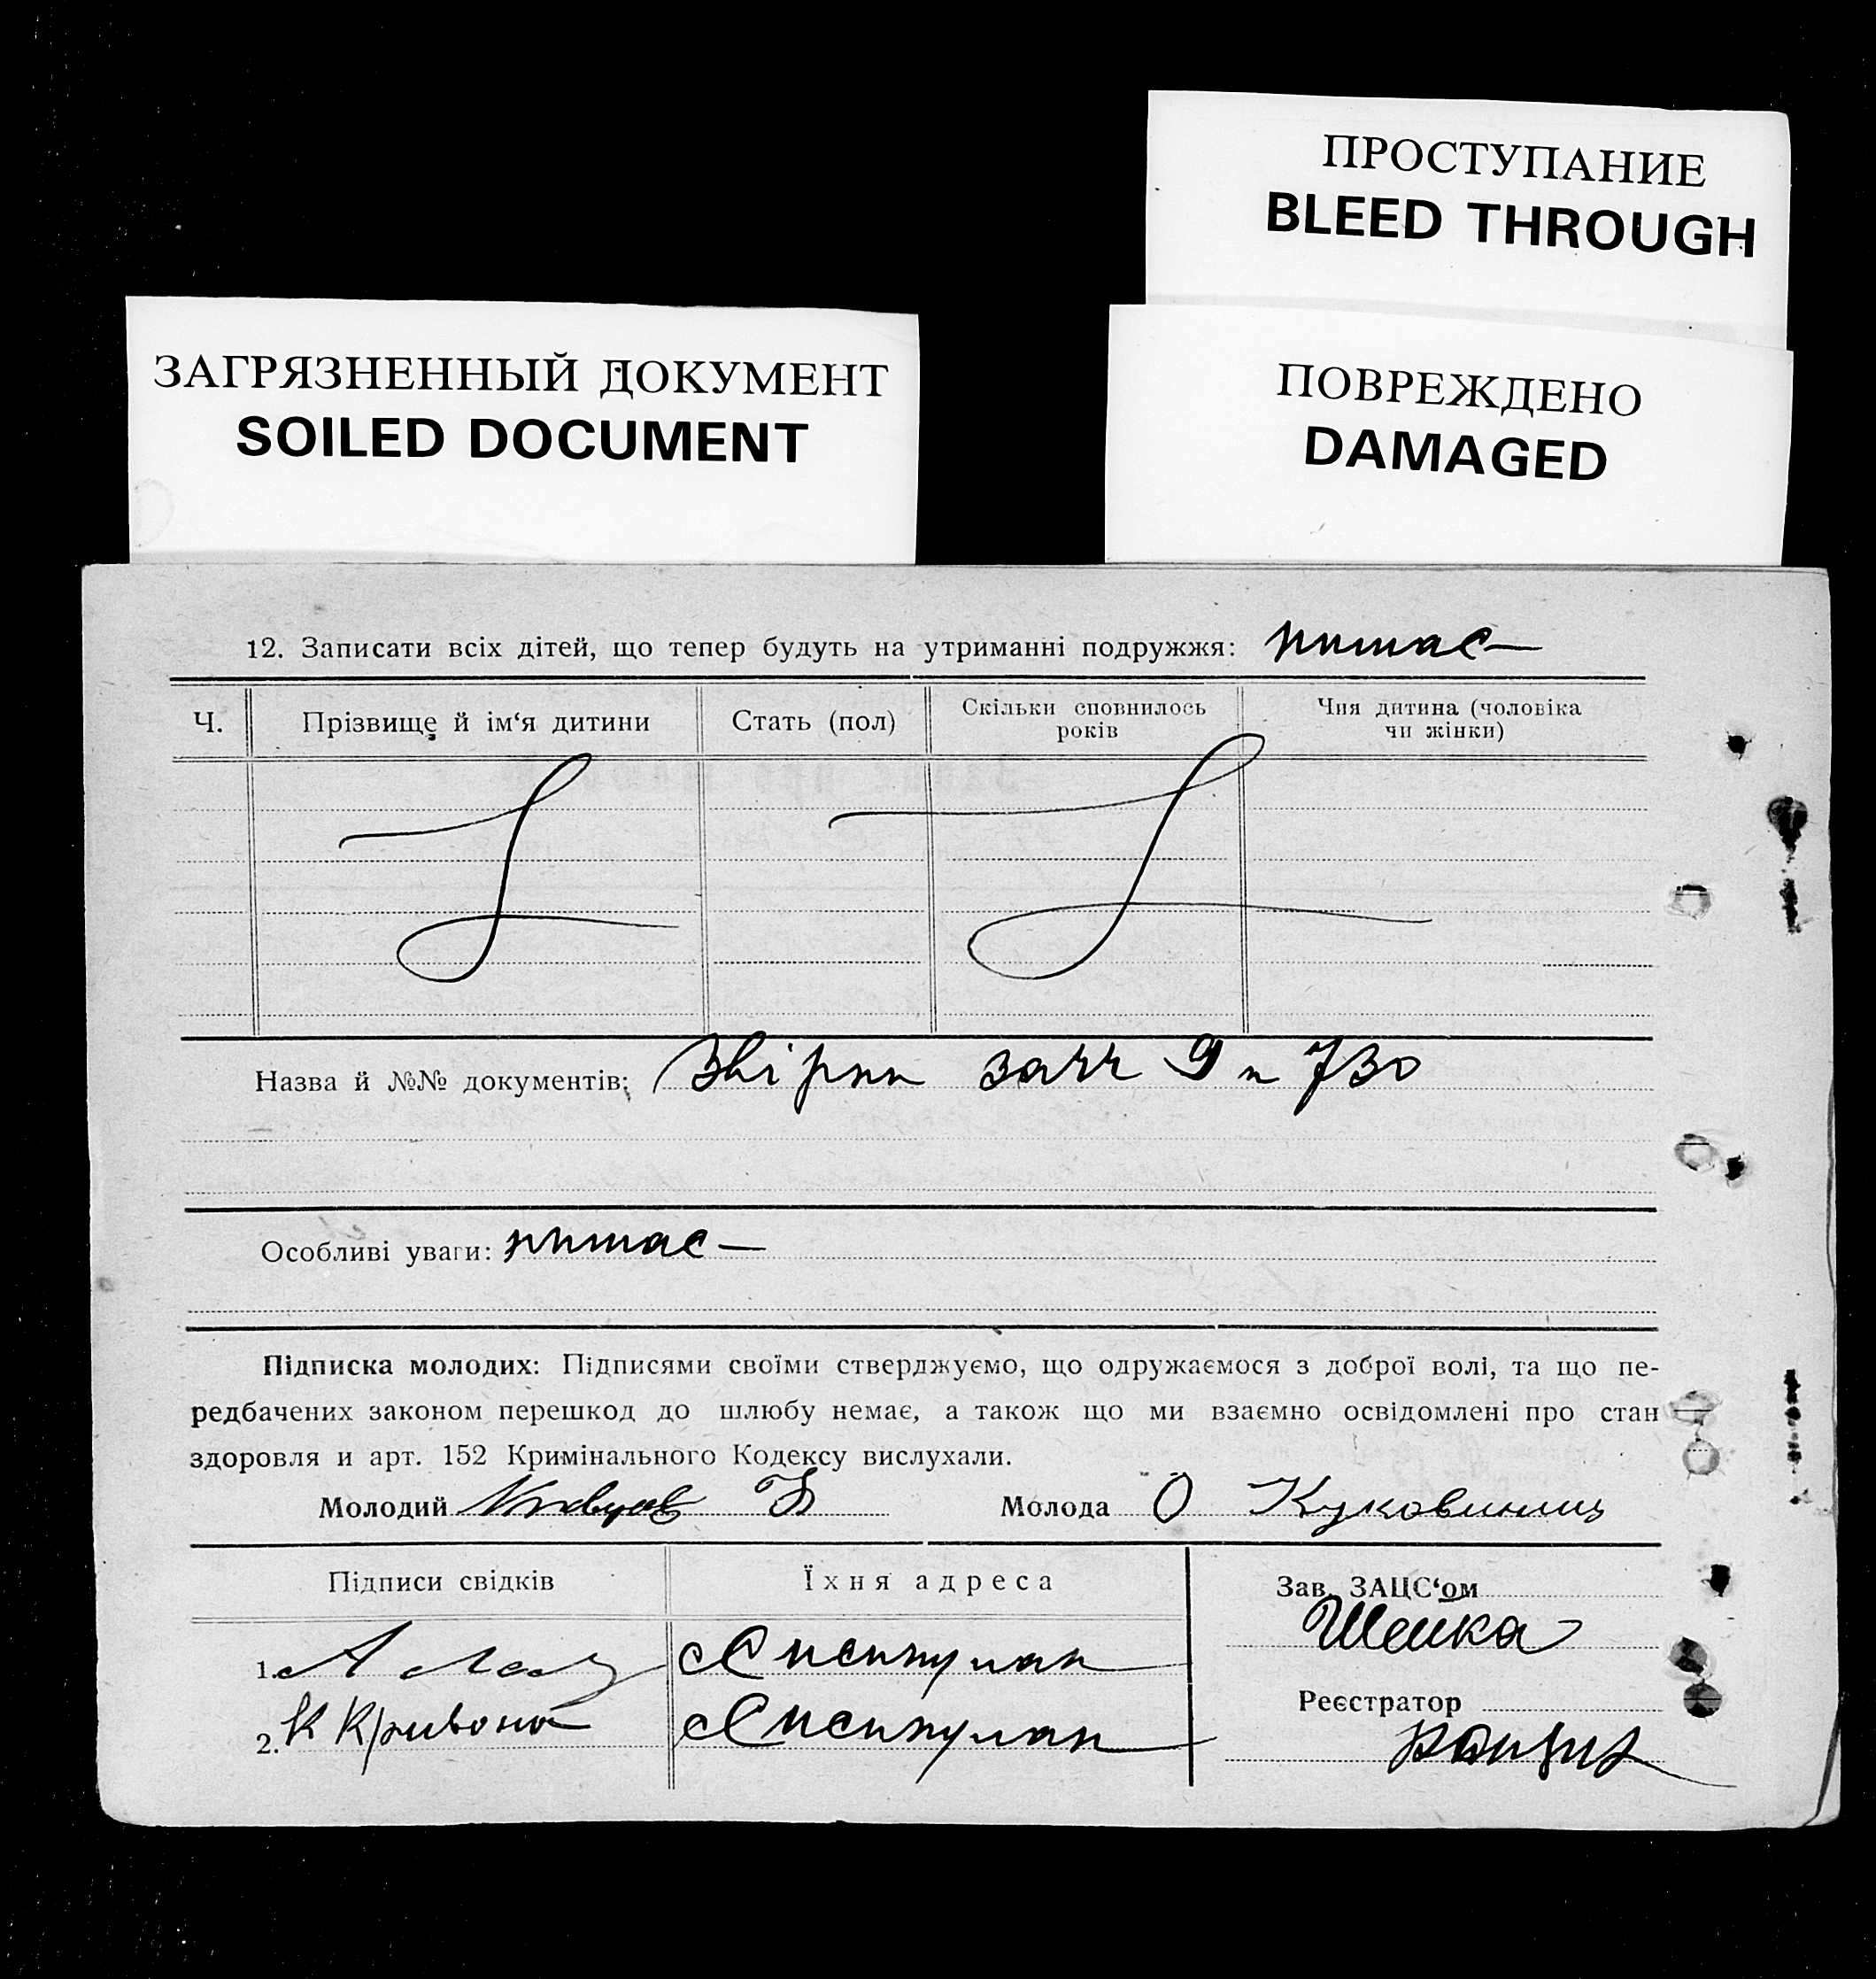 ПРОСТУПАНИЕ
BLEED THROUGH
ЗАГРЯЗНЕННЫЙ ДОКУМЕНТ
SOILED DOCUMENT
ПОВРЕЖДЕНО
DAMAGED
12. Записати всіх дітей, що тепер будуть на утриманні подружжя: немає
Ч. Прізвище й ім‘я дитини Стать (пол) Скільки сповнилось років Чия дитина (чоловіка чи жінки)
Назва й №№ документів: 9 730
Особливі уваги: немає
Підписка молодих: Підписями своїми стверджуємо, що одружаємося з доброї волі, та що пе-
редбачених законом перешкод до шлюбу немає, а також що ми взаємно освідомлені про стан
здоровля и арт. 152 Кримінального Кодексу вислухали.
Молодий Молода О
Підписи свідків Їхня адреса Зав. ЗАЦС‘ом
1.
Реєстратор
2. К